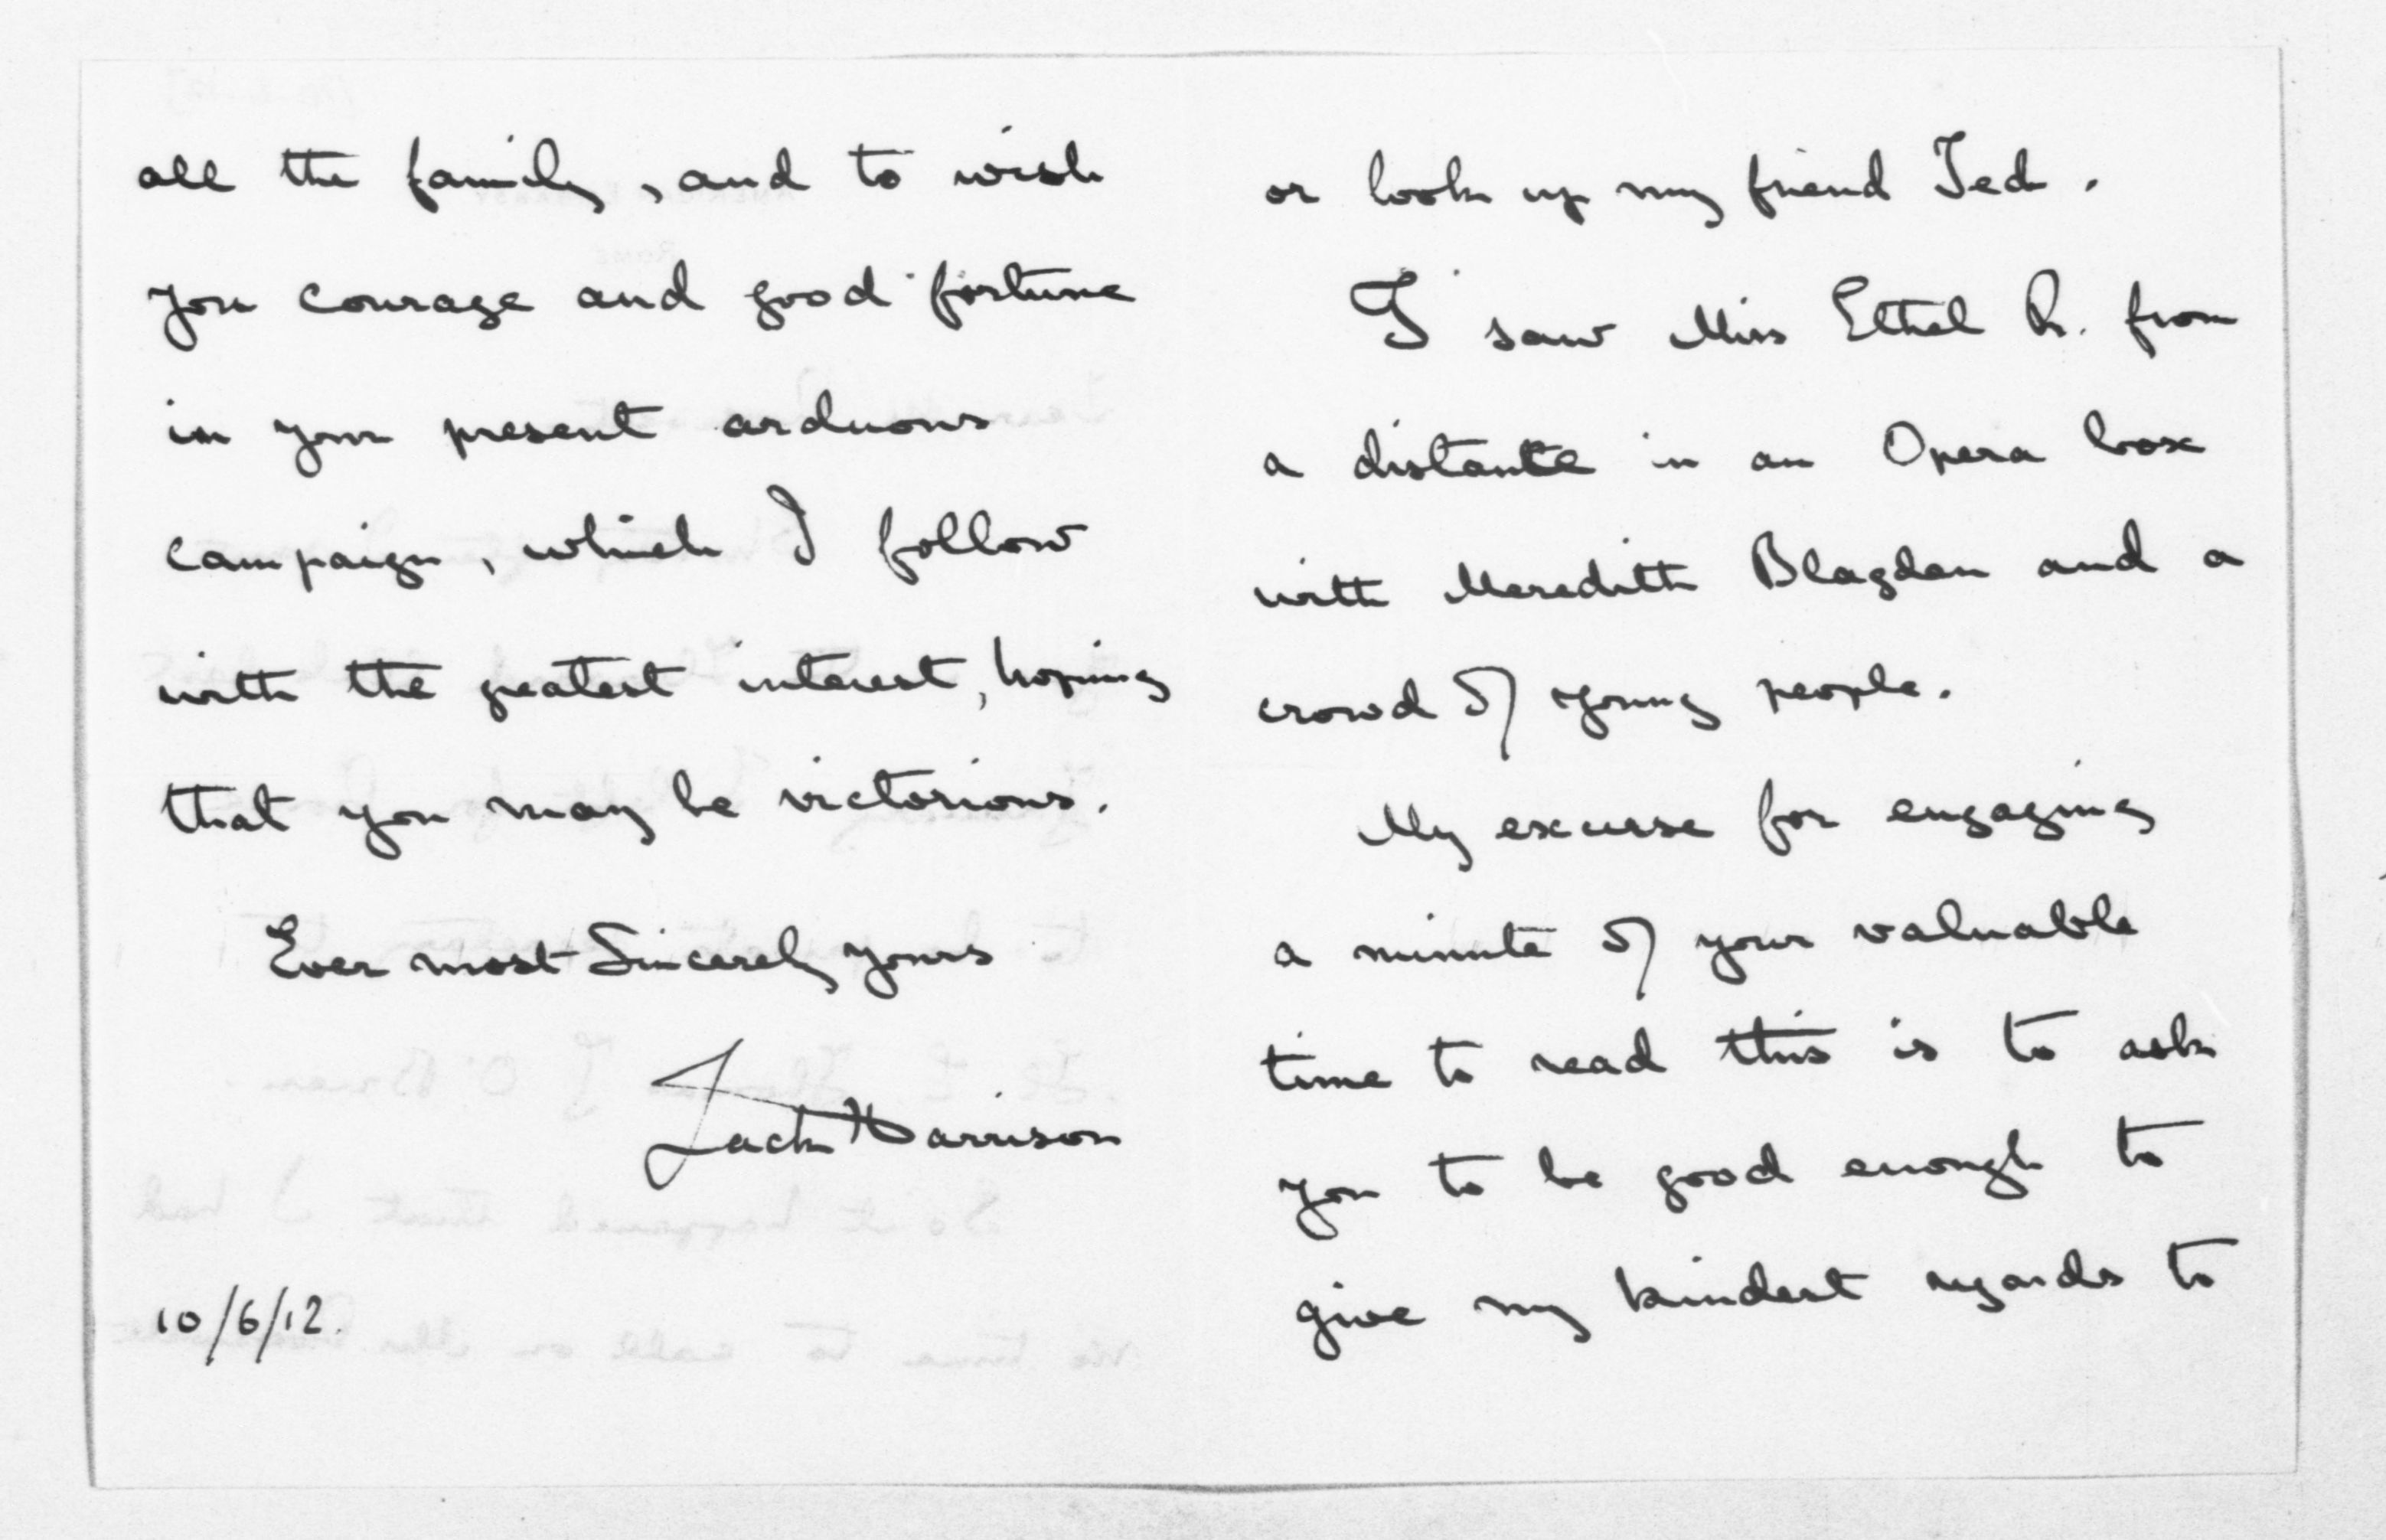 all the family, and to wish
you courage and good fortune
in your present arduous
campaign, which I follow
with the greatest interest, hoping
that you may be victorious.
Ever most Sincerely yours
Jack Harrison
10/6/12.
or look up my friend Ted.
I saw Miss Ethel R. from
a distance in an Opera box
with Meredith Blagden and a
crowd of young people.
My excuse for engaging
a minute of your valuable
time to read this is to ask
you to be good enough to
give my kindest regards to